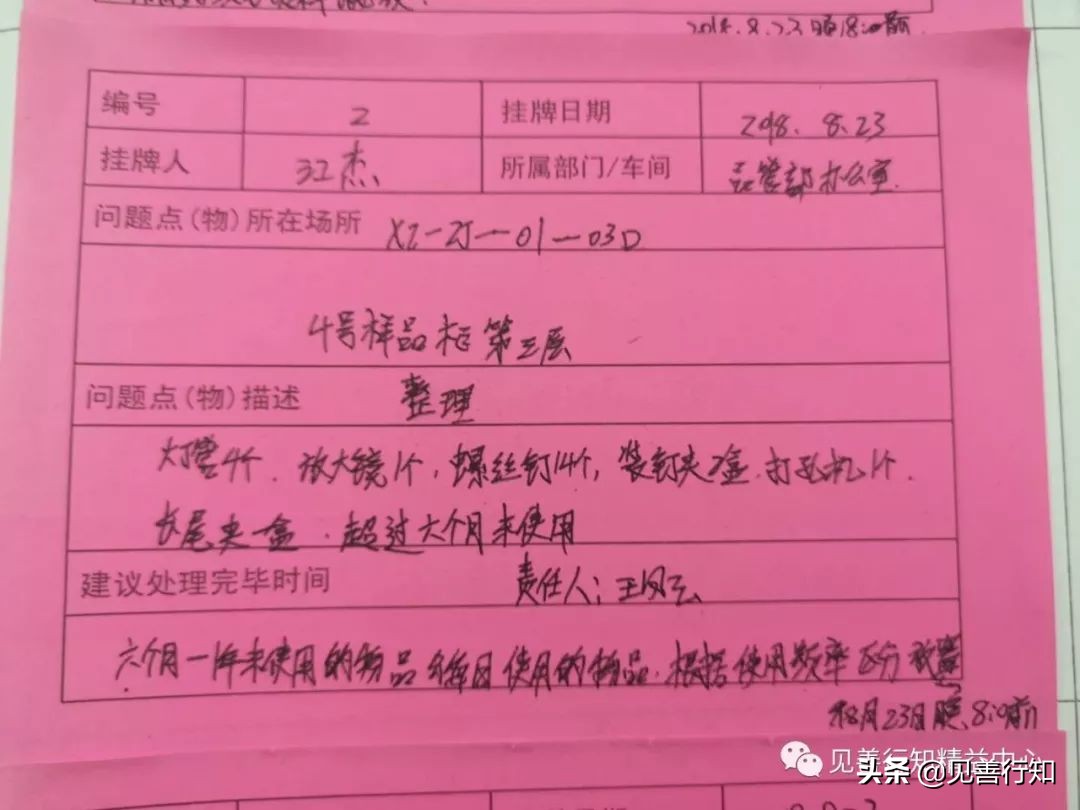 2018.8.23晚18:00前
编号 2 挂牌日期 2018.8.23
挂牌人 江杰 所属部门/车间 品管部办公室
问题点(物)所在场所 XZ-ZJ-01-03D
4号样品柜第三层
问题点(物)描述 整理
灯管4个.放大镜1个,螺丝钉14个,装钉夹2盒.打孔机1个.
长尾夹一盒.超过六个月未使用
建议处理完毕时间 责任人:王风云
六个月一1年未使用的物品 每日使用的物品.根据使用频率区分放置
8月23日晚8:00前
见善行知精益中心
头条 @见善行知